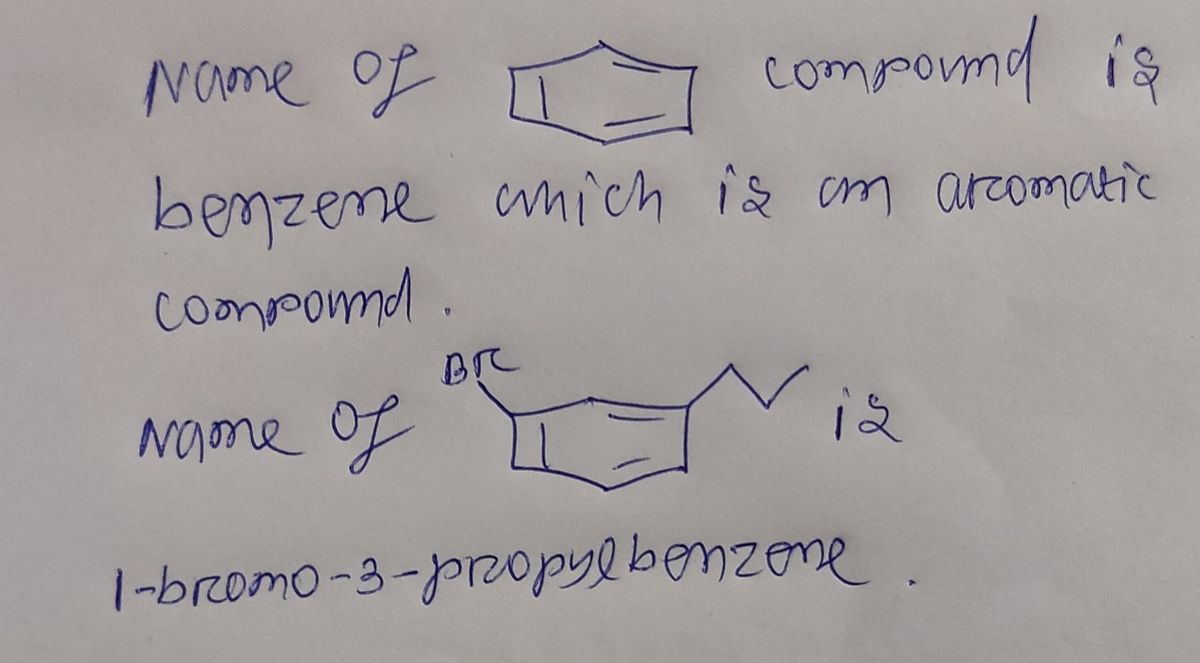 Name of compound is
benzene which is an aromatic
compound.
Br
Name of is
1-bromo-3-propylbenzene.